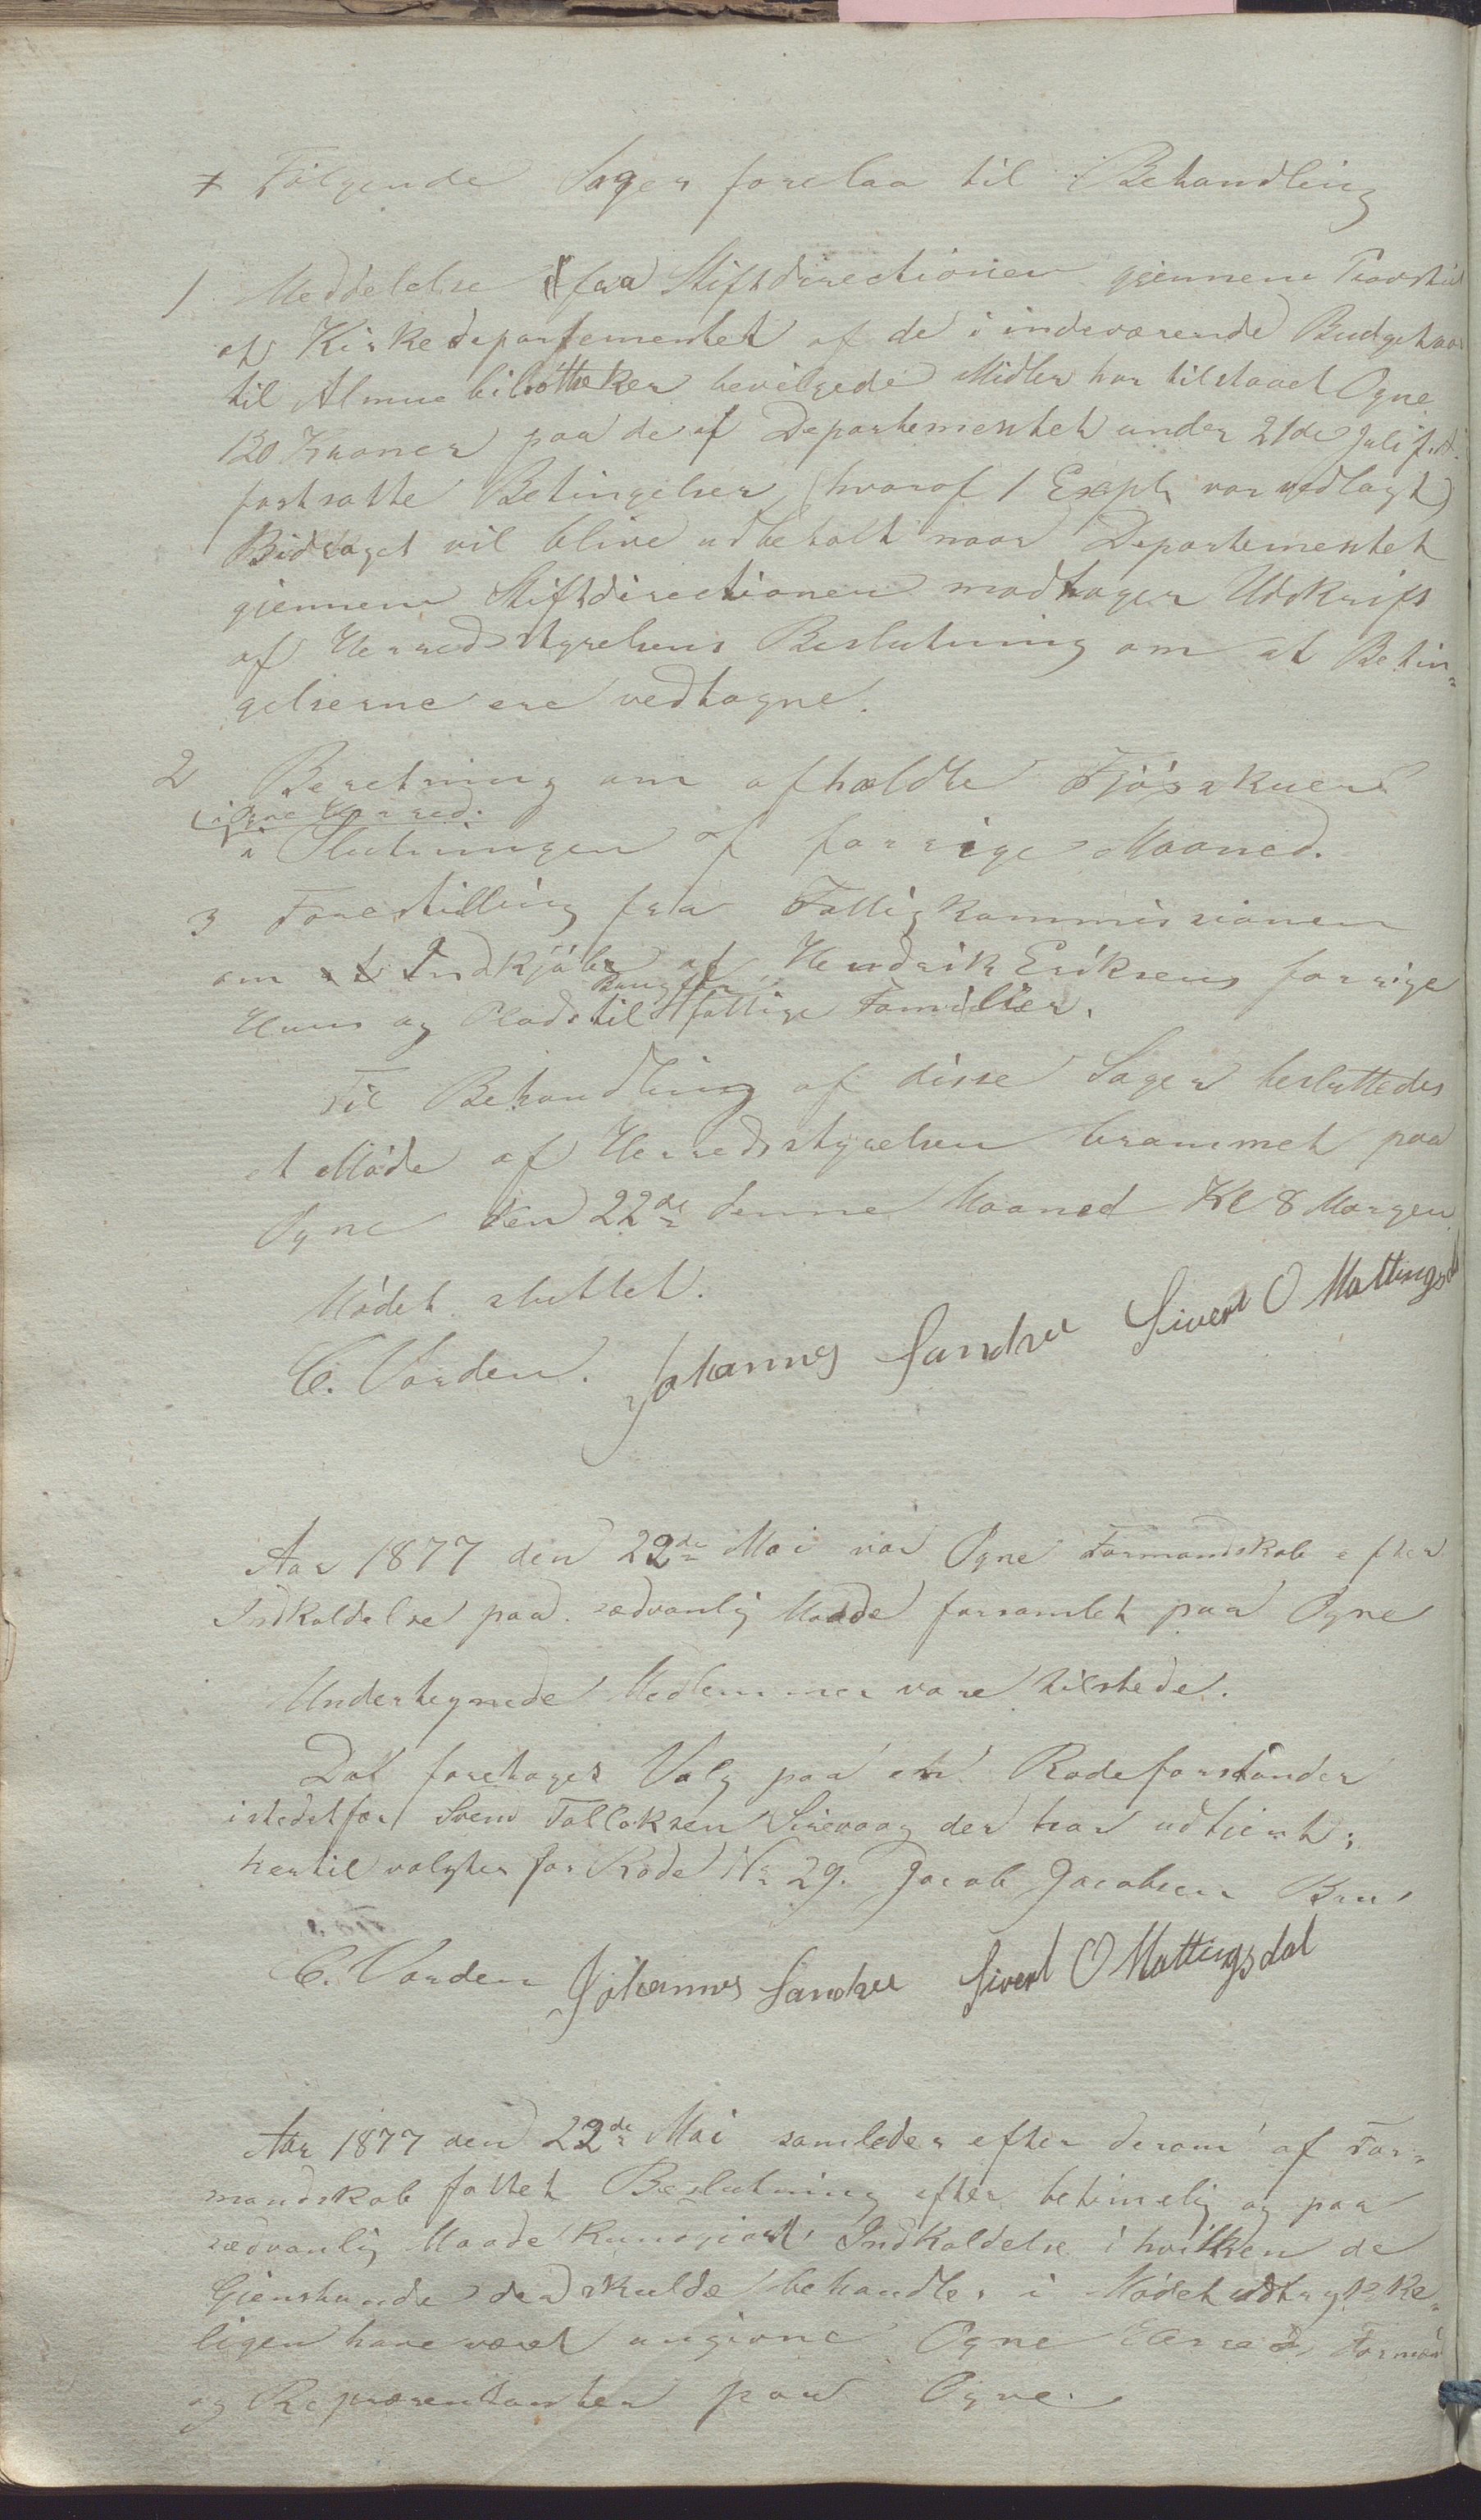 Følgende Sager forelaa til Behandling
1 Meddelelse fra Stiftdirectionen gjennem Provsten
at Kirkedepartementet af de i indeværende Budgetaar
til Almuebibliotheker bevilgede Midler har tilstaaet Ogne
120 Kroner paa de af Departementet under 21de Juli f. A.
fastsatte Betingelser, (hvoraf 1 Expl. var vedlagt)
Bidraget vil blive udbetalt naar Departementet
gjennem Stiftdirectionen modtager Udskrift
af Herredsstyrelsens Beslutning om at Betin-
gelserne ere vedtagne.
2 Beretning om afholdte Fjøsskuer
i Ogne Herred.
i Slutningen af forrige Maaned.
3 Forestilling fra Fattigkommissionen
om Indkjøb af Hendrik Eriksens forrige
Huus og Plads til fattige Familier.
Til Behandling af disse Sager besluttedes
et Møde af Herredsstyrelsen berammet paa
Ogne den 22de denne Maaned Kl 8 Morgen
Mødet sluttet.
C. Varden. Johannes Sandve Sivert O Mattingsdal
Aar 1877 den 22de Mai var Ogne Formandskab efter
Indkaldelse paa sædvanlig Maade forsamlet paa Ogne
Undertegnede Medlemmer vare tilstede.
Dat foretoges Valg paa en Rodeforstander
istedetfor Svend Tollaksen Sirevaag der har udtjent;
hertil valgtes for Rode No 29. Jacob Jacobsen Bru
C. Varden Johannes Sandve Sivert O Mattingsdal
Aar 1877 den 22de Mai samledes efter derom af For-
mandskab fattet Beslutning efter betimelig og paa
sædvanlig Maade kundgjort Indkaldelse i hvilken de
Gjenstande der skulde behandles i Mødet udtrykke-
ligen have været angivne Ogne Herreds Formænd
og Repræsentanter paa Ogne.